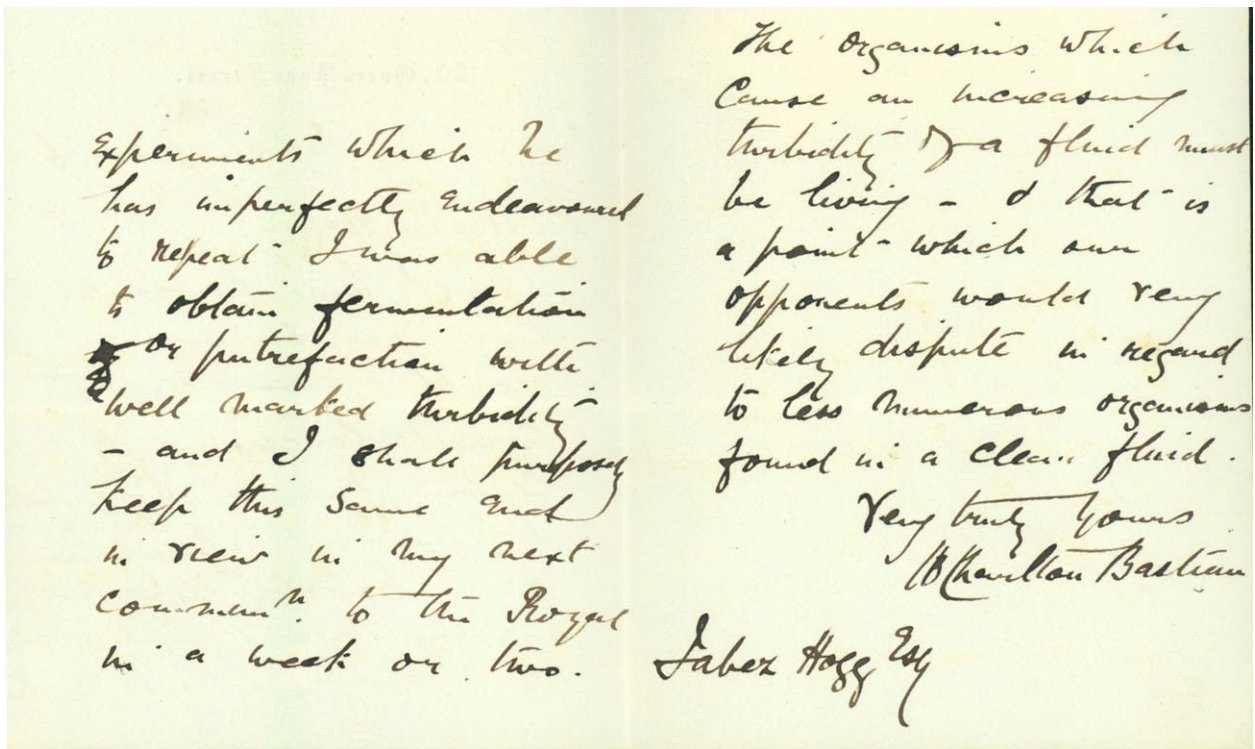 Experiments which he
has imperfectly Endeavoured
to repeat I was able
to obtain fermentation
or putrefaction with
well marked turbidity
- and I shall purposely
Keep this Same End
in view in my next
Commun<sup>n</sup>. to the Royal
in a week or two.
The organisms which
Cause an increasing
turbidity of a fluid must
be living - & that is
a point - which our
opponents would very
likely dispute in regard
to less numerous organisms
found in a clear fluid.
Very truly Yours
H Charlton Bastian
Jabez Hogg Esq